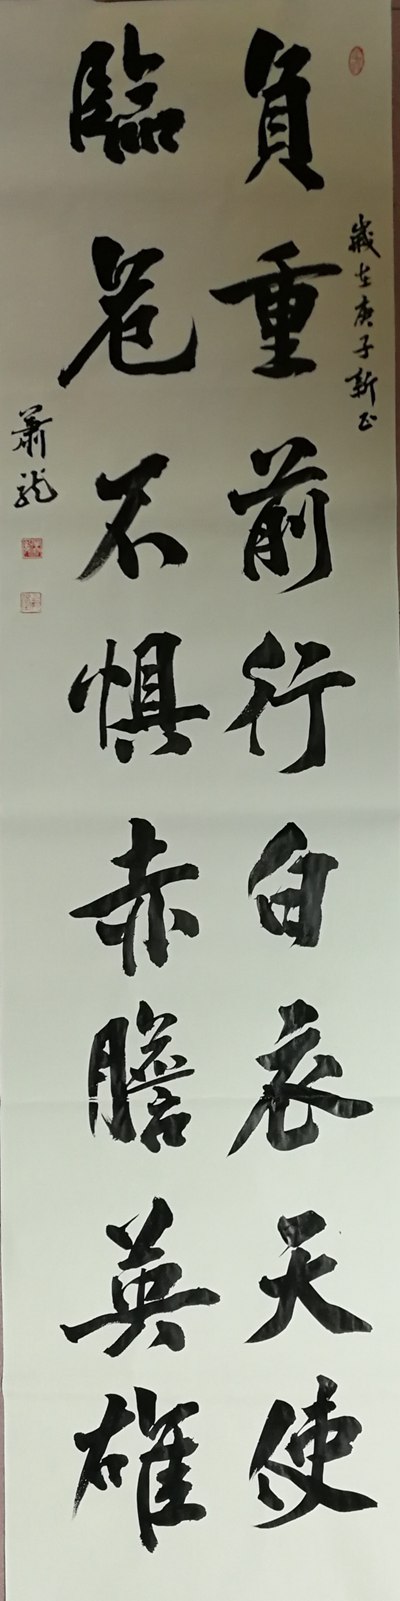 歲在庚子新正
負重前行白衣天使
臨危不懼赤膽英雄
蕭龍